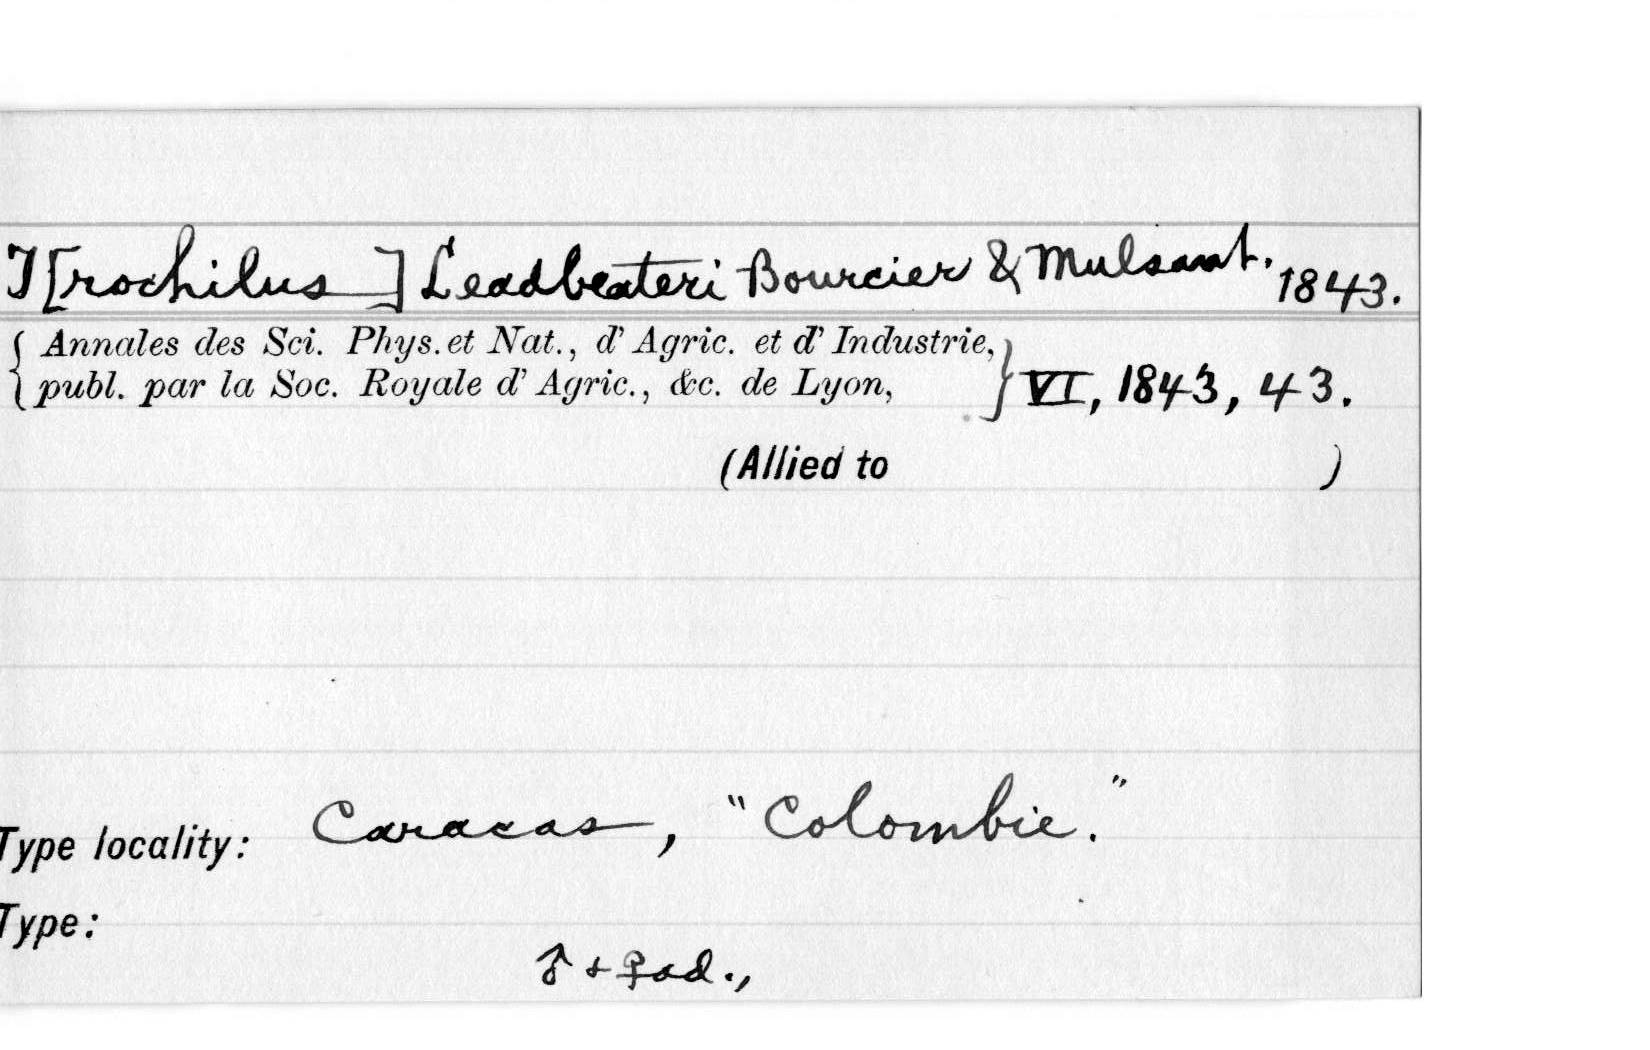 T[rochilus ] Leadbeateri Bourcier & Mulsant. 1843.
{ Annales des Sci. Phys. et Nat., d' Agric. et d' Industrie,
publ. par la Soc. Royale d' Agric., &c. de Lyon, } VI, 1843, 43.
(Allied to )
Type locality: Caracas, "Colombie."
Type:
♂ + ♀ ad.,